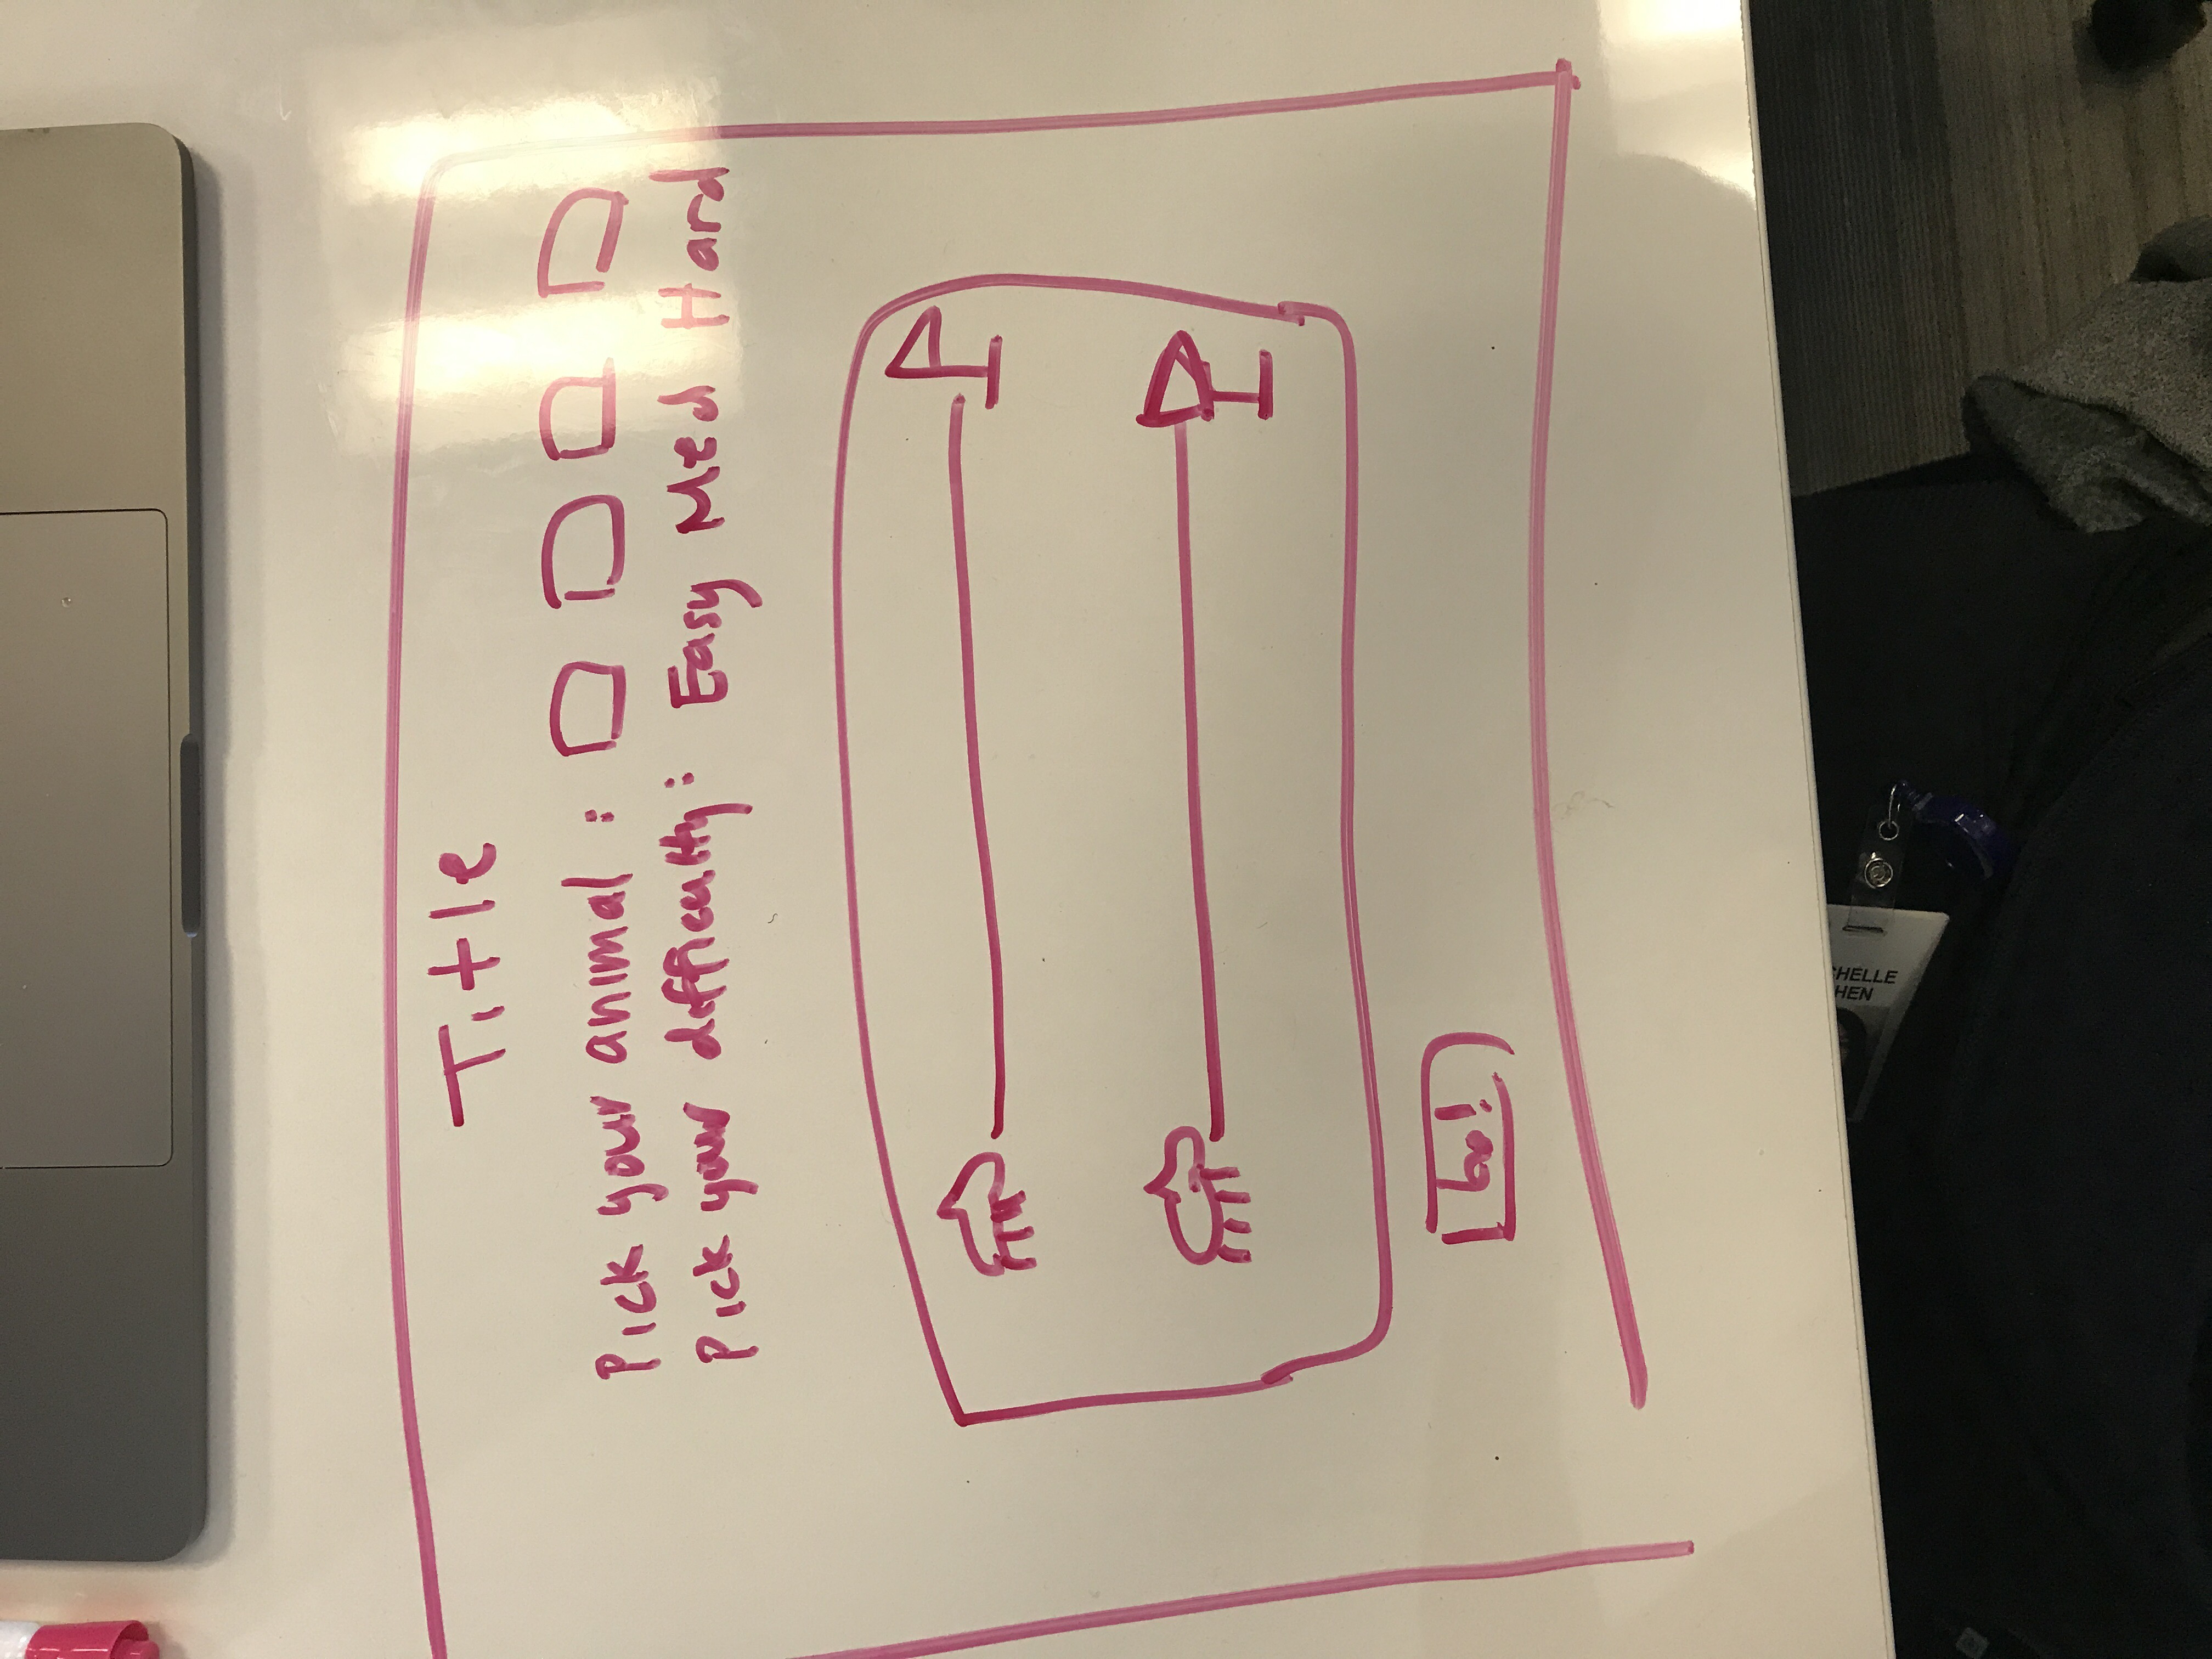 Title
Pick your animal :
Pick your difficulty: Easy Med Hard
Go!